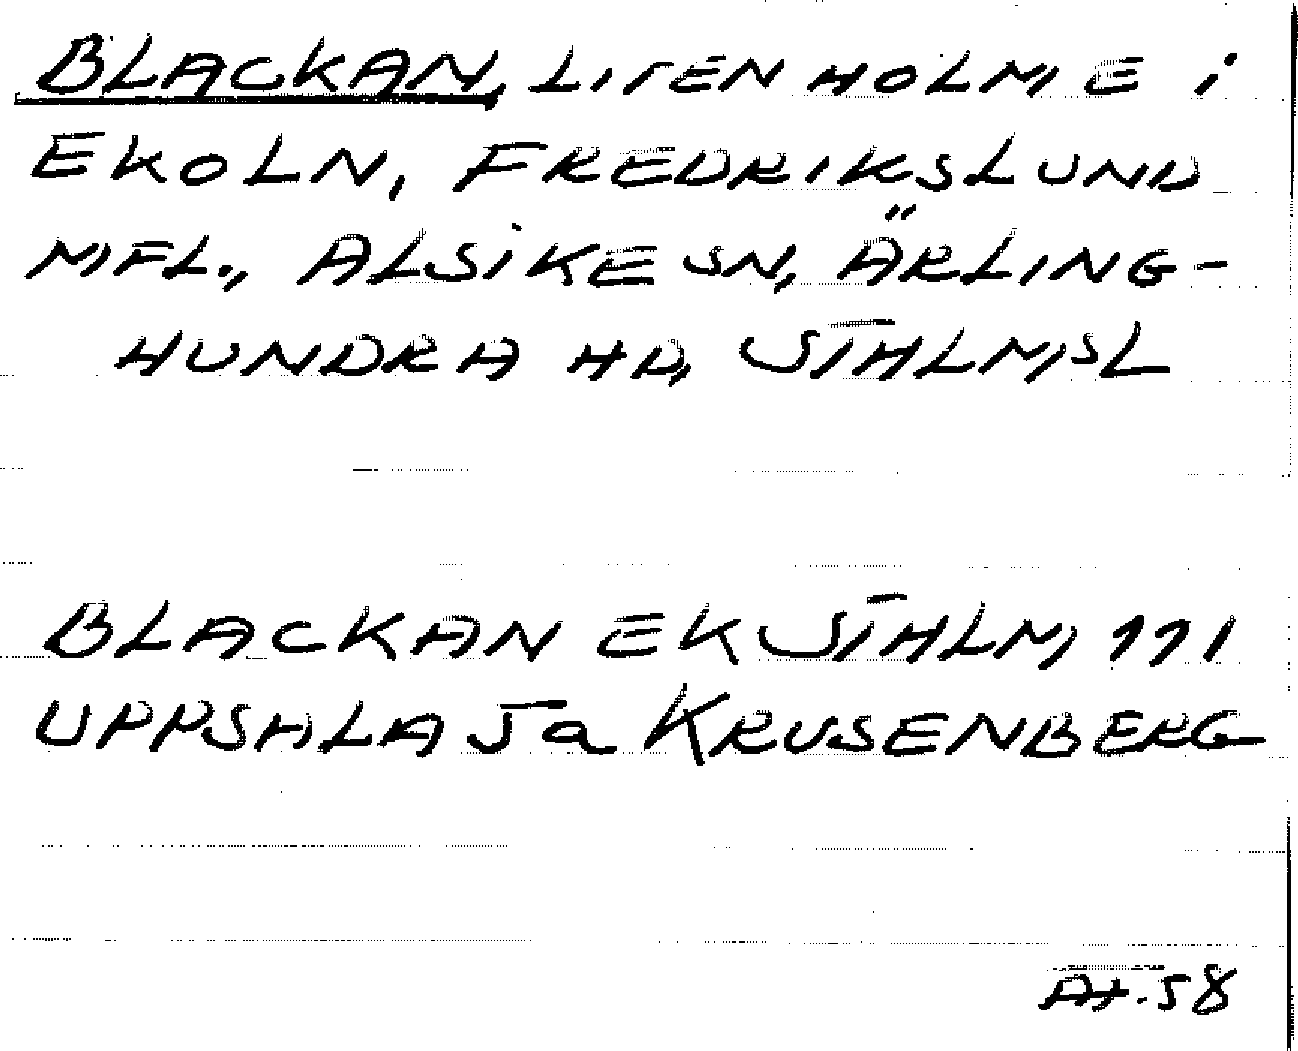 BLACKAN, LITEN HOLME i
EKOLN, FREDRIKSLUND
MFL., ALSIKE SN, ÄRLING-
HUNDRA HD, STHLMSL
BLACKAN EK STHLM 111
UPPSALA 5a KRUSENBERG
At. 58